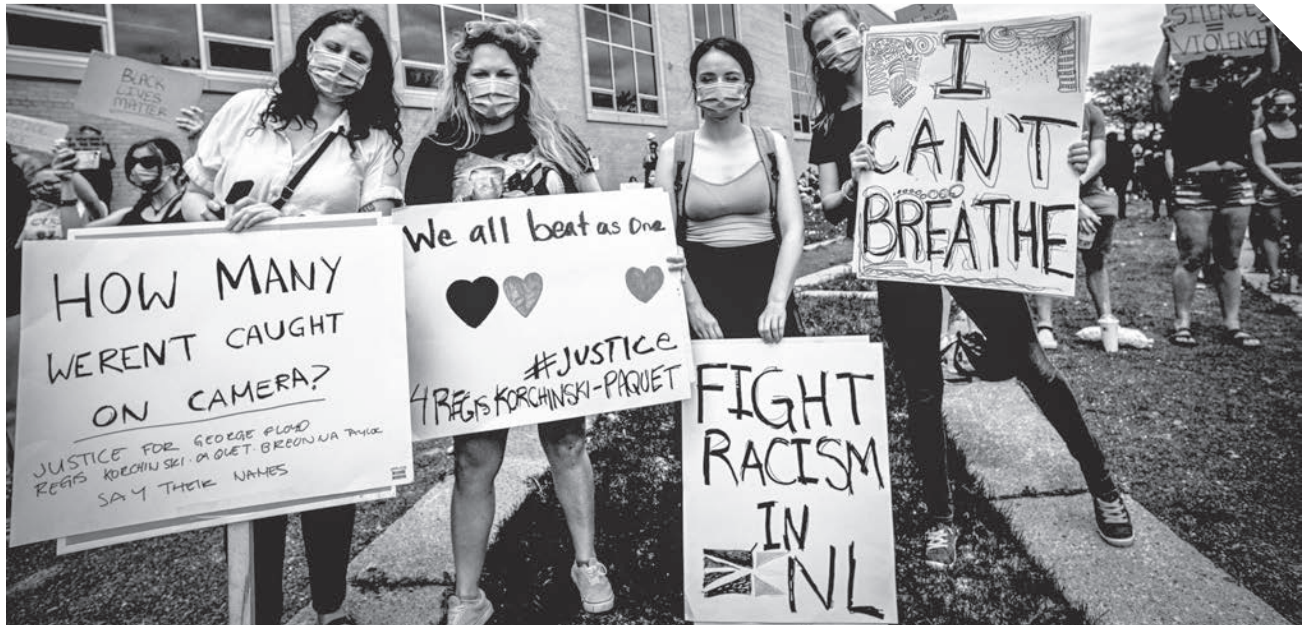 BLACK
LIVES
MATTER
HOW MANY
WERENT CAUGHT
ON CAMERA?
JUSTICE FOR GEORGE FLOYD
REGIS KORCHINSKI-PAQUET. BREONNA TAYLOR
SAY THEIR NAMES
We all beat as One
#JUSTICE
4 REGIS KORCHINSKI-PAQUET
FIGHT
RACISM
IN
NL
I
CAN'T
BREATHE
SILENCE
=
VIOLENCE